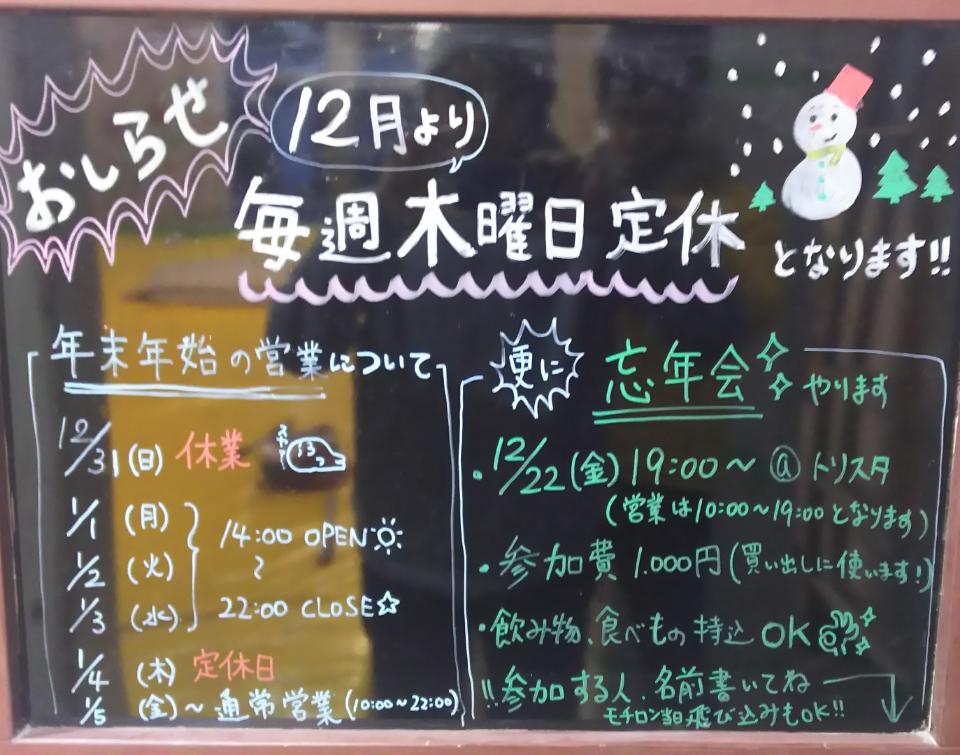 おしらせ
12月より
毎週木曜日定休
となります!!
年末年始の営業について
12/31(日) 休業
1/1 (月)
1/2 (火)
1/3 (水)
14:00 OPEN
〜
22:00 CLOSE☆
1/4 (木) 定休日
1/5 (金)〜通常営業(10:00〜22:00)
更に
忘年会
やります
・12/22(金)19:00〜 @トリスタ
(営業は10:00〜19:00となります)
・参加費 1.000円(買い出しに使います!)
・飲み物、食べもの持込OK
!!参加する人、名前書いてね
モチロン当日飛び込みもOK!!